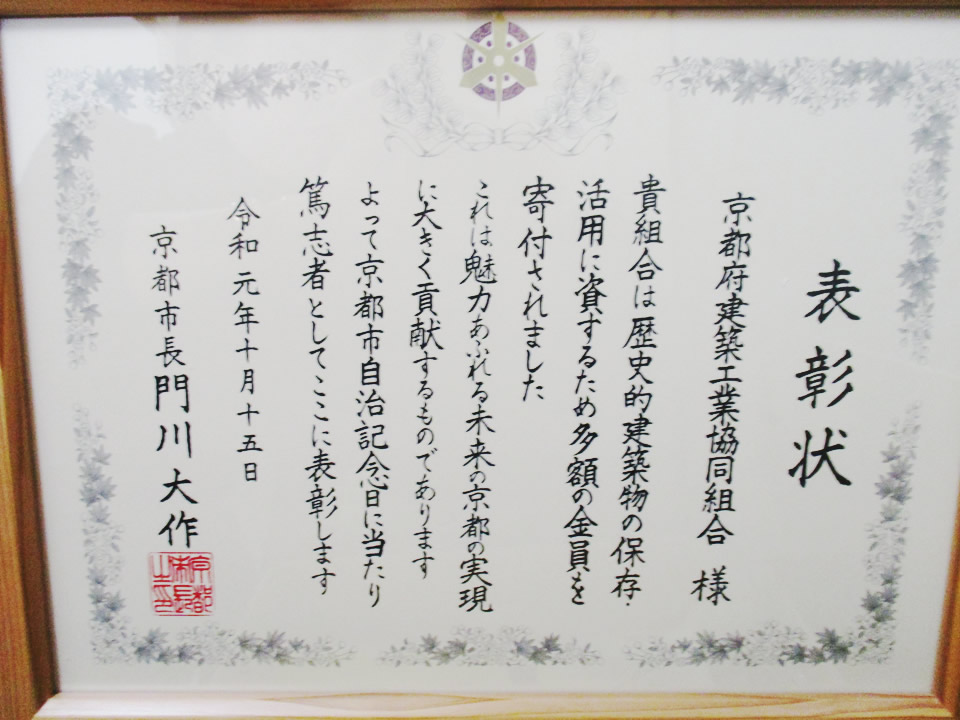 表彰状
京都府建築工業協同組合 様
貴組合は歴史的建築物の保存・
活用に資するため多額の金員を
寄付されました
これは魅力あふれる未来の京都の実現
に大きく貢献するものであります
よって京都市自治記念日に当たり
篤志者としてここに表彰します
令和元年十月十五日
京都市長 門川大作
京都
市長
之印